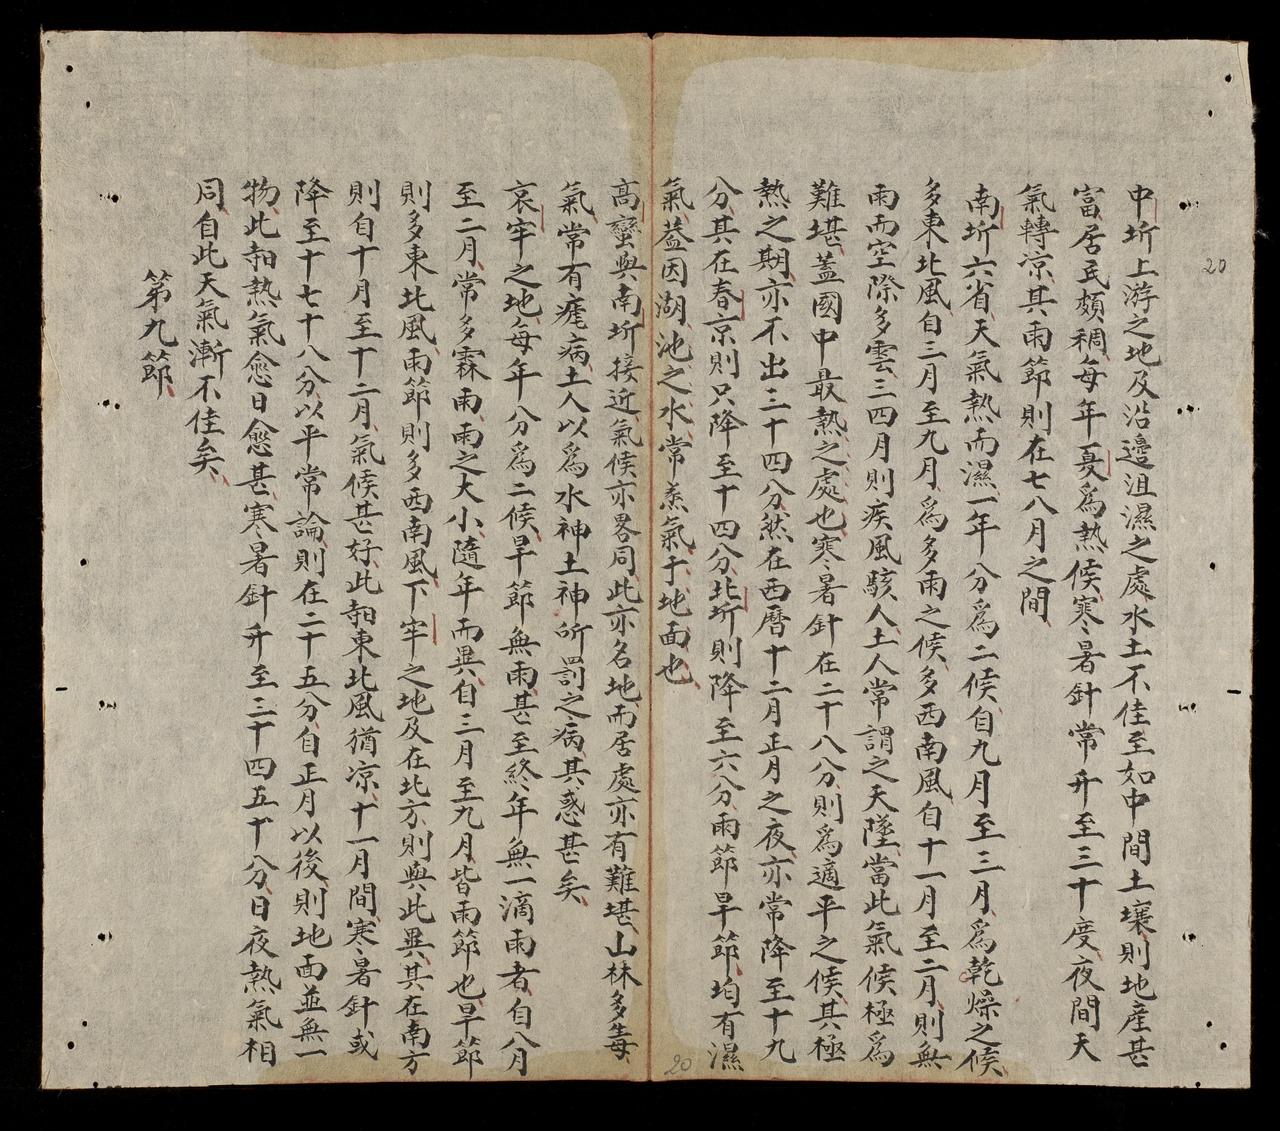 20
中圻上游之地及沿邊沮濕之處水土不佳至如中間土壤則地產甚
富居民頗稠每年夏爲熱候寒暑針常升至三十度夜間天
氣轉凉其雨節則在七八月之間
南圻六省天氣熱而濕一年分爲二候自九月至三月爲乾燥之候
多東北風自三月至九月爲多雨之候多西南風自十一月至二月則無
雨而空際多雲三四月則疾風駭人土人常謂之天墜當此氣候極爲
難堪蓋國中最熱之處也寒暑針在二十八分則爲適平之候其極
熱之期亦不出三十四分然在西曆十二月正月之夜亦常降至十九
分其在春京則只降至十四分北圻則降至六分雨節旱節均有濕
氣益因湖池之水常蒸氣于地面也
高蠻與南圻接近氣候亦畧同此亦名地而居處亦有難堪山林多毒
氣常有瘧病土人以爲水神土神所罰之病其惑甚矣
哀牢之地每年分爲二候旱節無雨甚至終年無一滴雨者自八月
至二月常多霖雨雨之大小隨年而異自三月至九月皆雨節也旱節
則多東北風雨節則多西南風下牢之地及在北方則與此異其在南方
則自十月至十二月氣候甚好此時東北風猶凉十一月間寒暑針或
降至十七十八分以平常論則在二十五分自正月以後則地面並無一
物此時熱氣愈日愈甚寒暑針升至三十四五十分日夜熱氣相
同自此天氣漸不佳矣
第九節
20